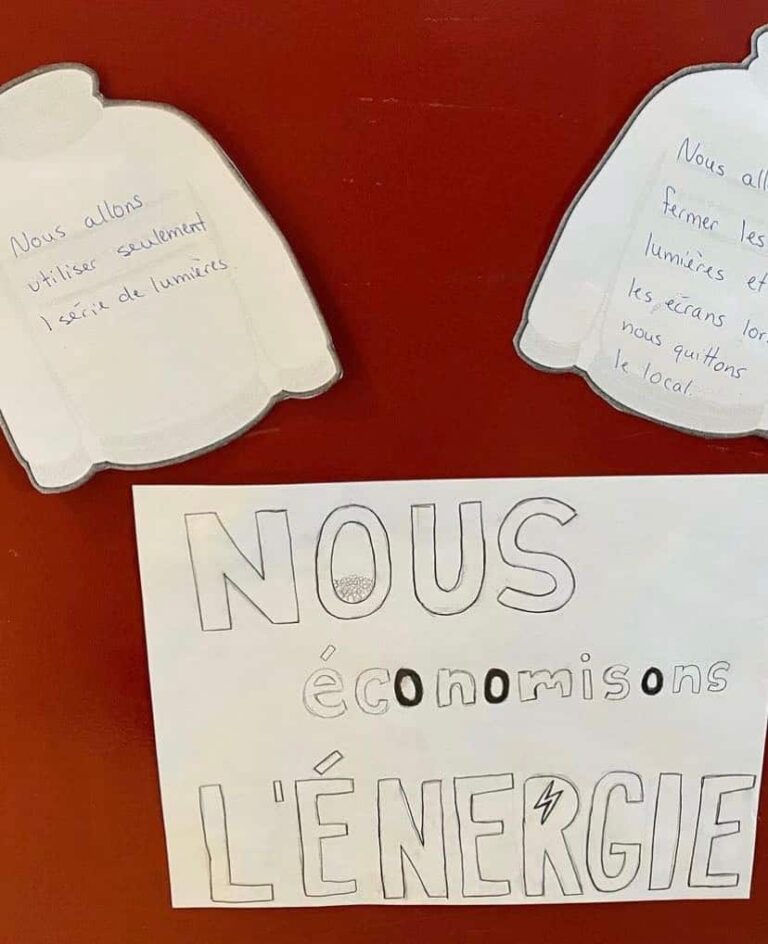 Nous allons
utiliser seulement
1 série de lumières.
Nous all
fermer les
lumières et
les écrans lor
nous quittons
le local.
NOUS
économisons
L'ÉNERGIE